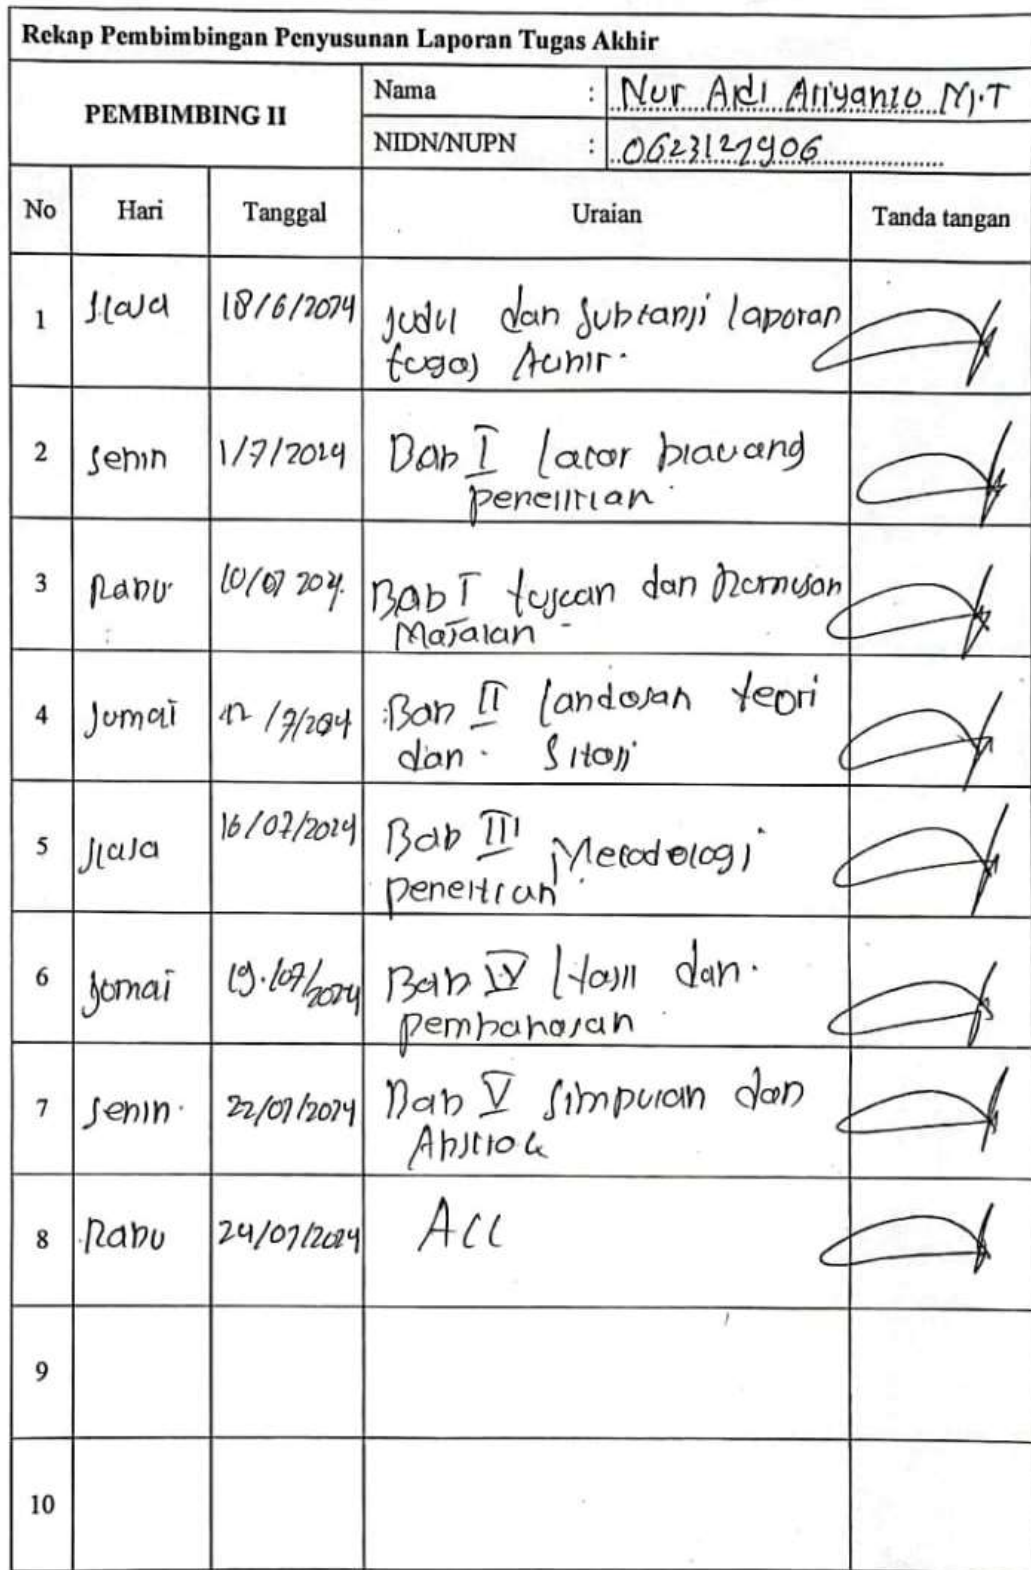 Rekap Pembimbingan Penyusunan Laporan Tugas Akhir
PEMBIMBING II
Nama : Nur Ardi Ariyanto M.T
NIDN/NUPN : 0623127906
No Hari Tanggal Uraian Tanda tangan
1 Slasa 18/6/2024 Judul dan Subtansi laporan
tugas Akhir.
2 Senin 1/7/2024 Bab I latar blakang
penelitian
3 Rabu 10/07 2024 Bab I tujuan dan Rumusan
Masalah
4 Jumat 12/7/2024 Bab II landasan teori
dan Sitasi
5 Slasa 16/07/2024 Bab III Metodologi
penelitian
6 Jumat 19/07/2024 Bab IV Hasil dan
pembahasan
7 Senin 22/07/2024 Bab V Simpulan dan
Abstrak
8 Rabu 24/07/2024 Acc
9
10